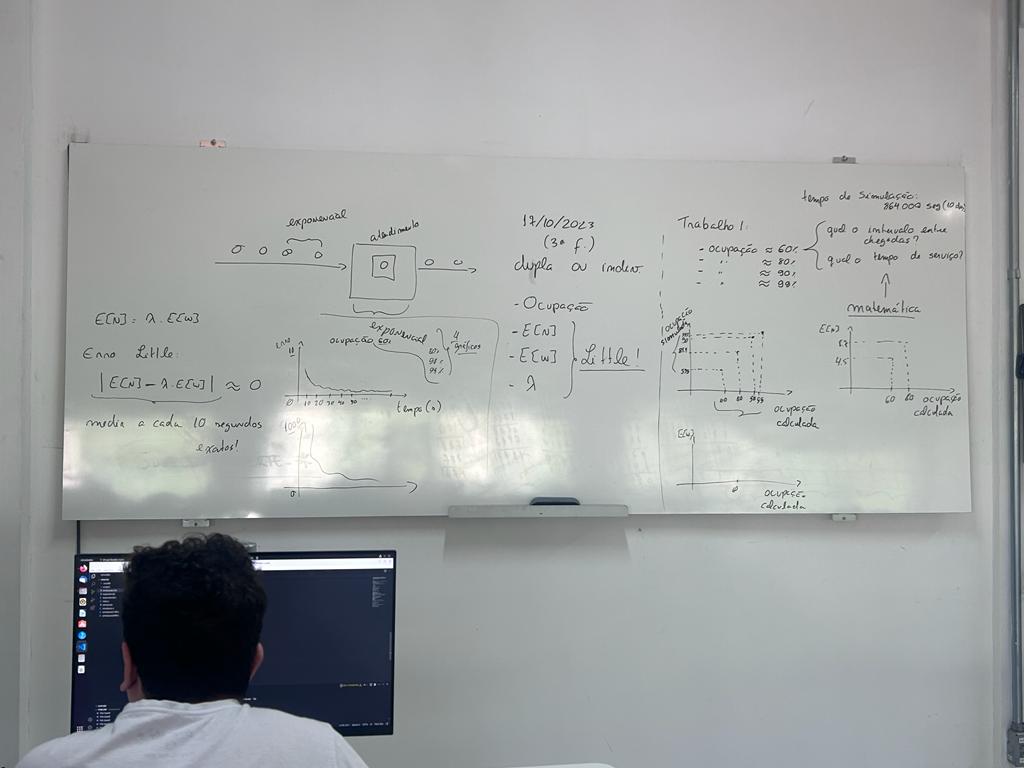 exponencial
atendimento
exponencial
E[N] = λ. E[W]
Erro Little:
|E[N] - λ.E[W]| ≈ 0
média a cada 10 segundos
exatos!
ocupação 60%
80%
90%
99%
4
gráficos
10
0
10 20 30 40 50 ...
tempo (s)
1000
0
17/10/2023
(3ª f.)
dupla ou indiv.
- Ocupação
- E[N]
- E[W]
- λ
Little!
Trabalho 1:
- ocupação ≈ 60%
- " ≈ 80%
- " ≈ 90%
- " ≈ 99%
tempo de simulação:
864000 seg (10 dias)
qual o intervalo entre
chegadas?
qual o tempo de serviço?
matemática
ocupação
simulada
60 80 90 99
ocupação
calculada
E[N]
8.7
4.5
60 80
ocupação
calculada
E[W]
ocupação
calculada